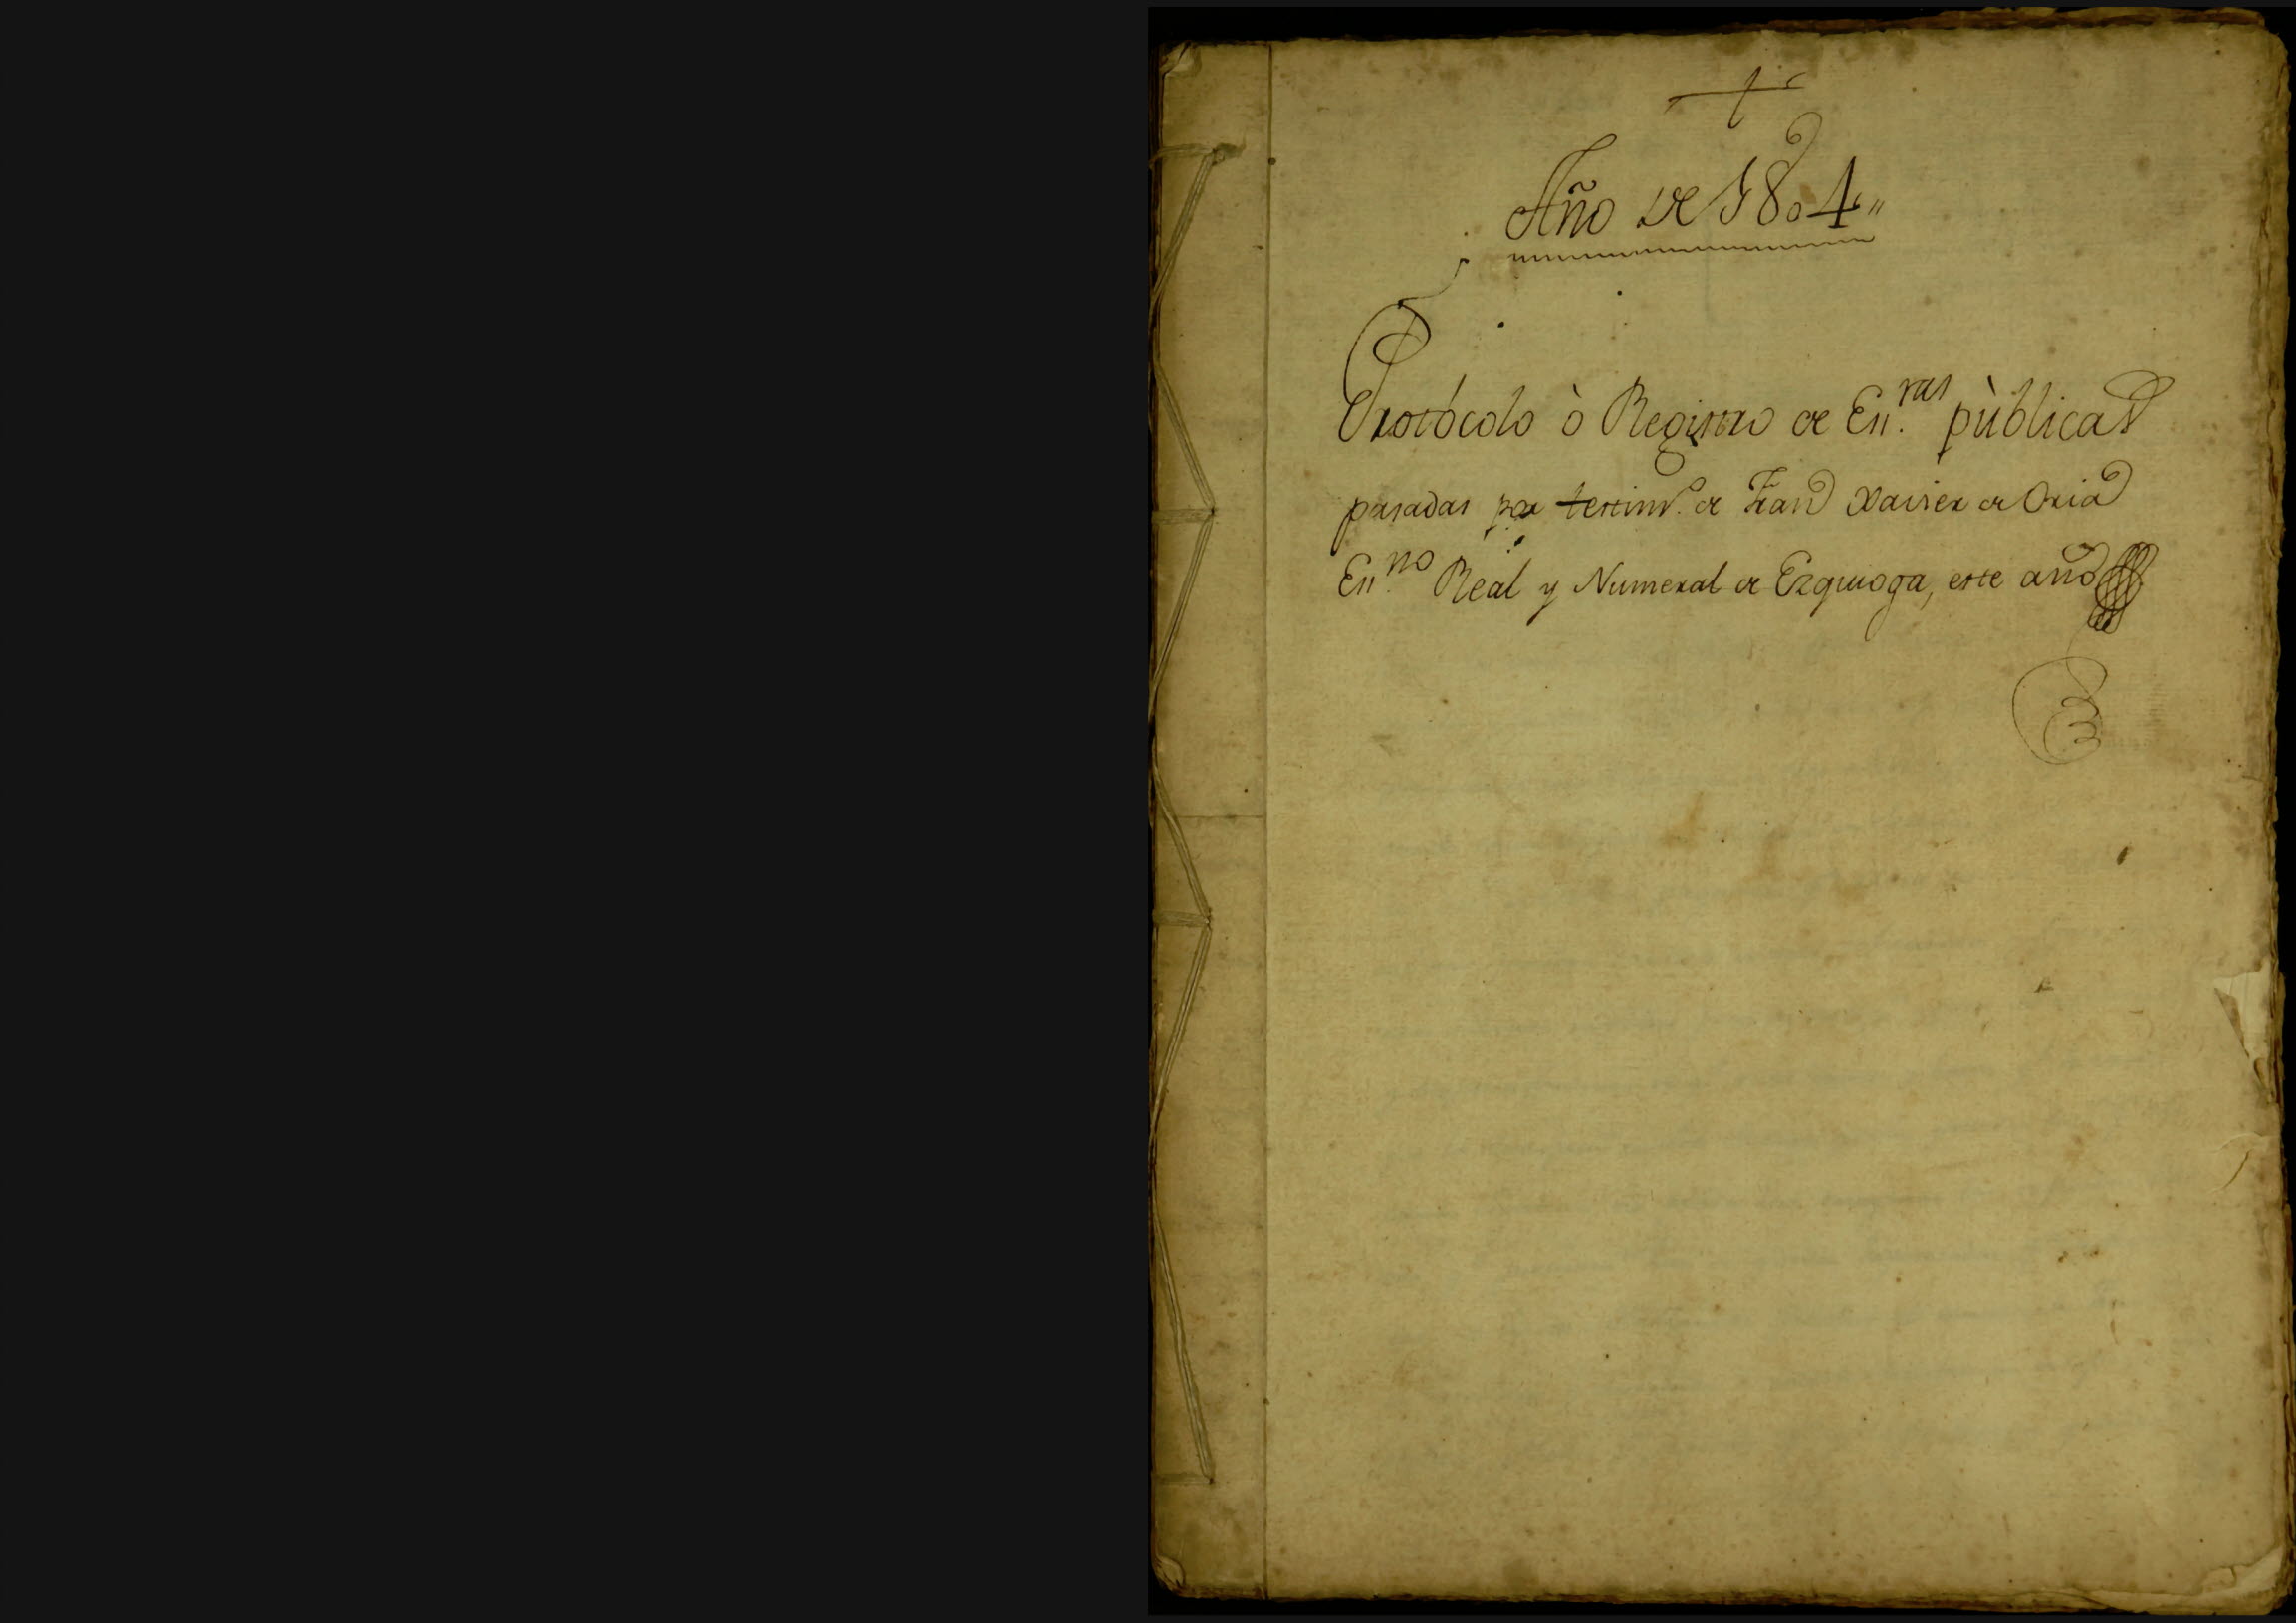 +
Año de 1804,,
Protócolo ò Registro de Esras pùblicas
pasadas por testimo. de Franco Xavier de Oria
Esno. Real y Numeral de Ezquioga, este año